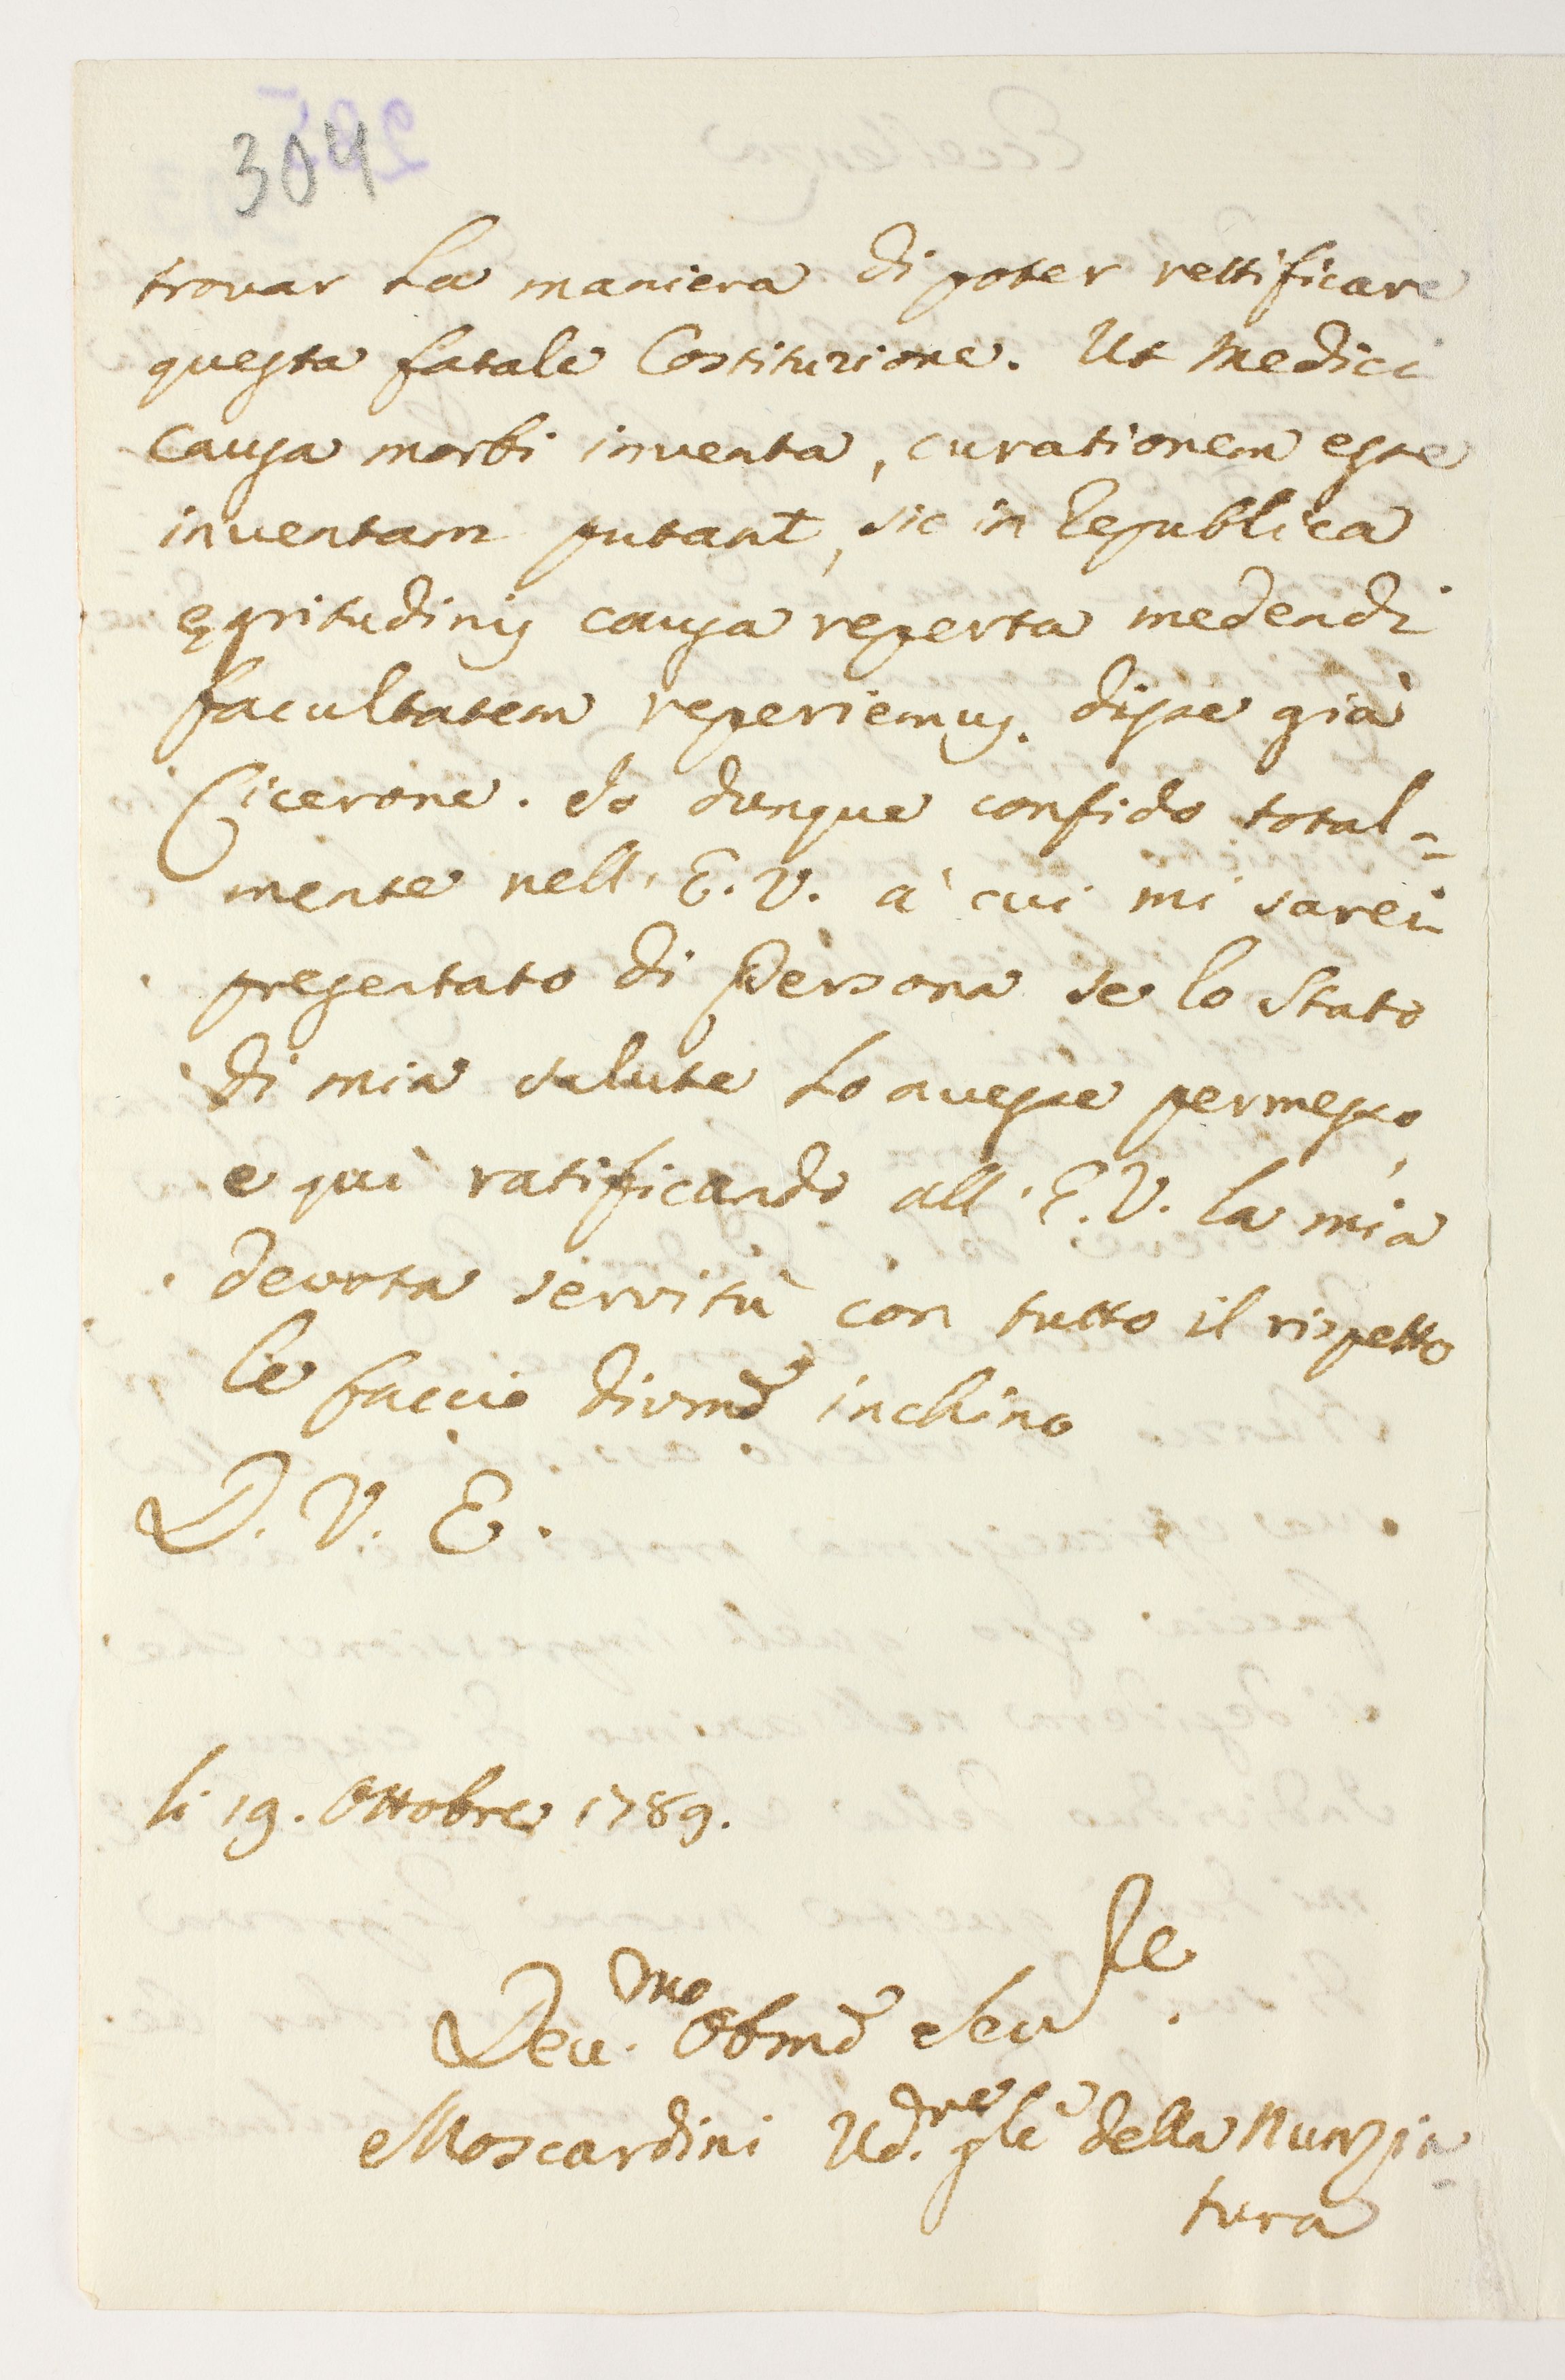 304
trovar la maniera di poter rettificare
questa fatale Costituzione. Ut Medici
causa morbi inventa, curationem esse
inventam putant, sic in Republica
ęgritudinis causa reperta medendi
facultatem reperiemus. disse già
Cicerone. Io dunque confido total=
mente nell'E.V. à cui mi sarei
presentato di Persona se lo Stato
di mia salute lo avesse permesso,
e quì ratificando all'E.V. la mia
devota servitù con tutto il rispetto
le faccio divmo inchino
D. V. E.
li 19. Ottobre 1789.
Deu.mo Obmo Seu.re
Moscardini Ud.re gle della Nunzia=
tura